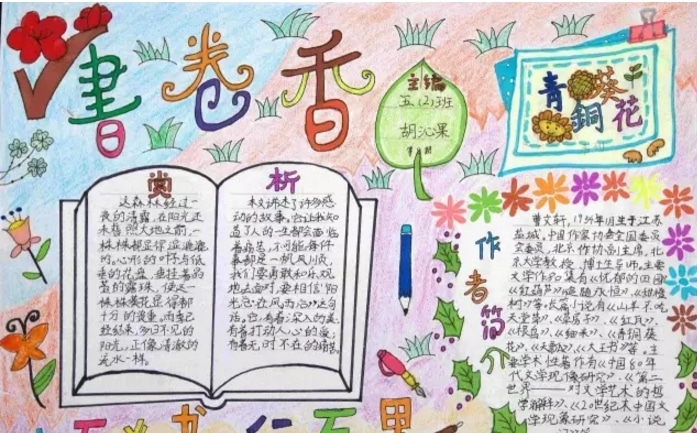 書卷香
主编
五(2)班
胡沁果
青銅葵花
赏析
这森林经过一
夜的清露,在阳光还
未普照大地之前,一
株株都是湿漉漉
的。心形的叶子与低
垂的花盘,垂挂着晶
莹的露珠,使这一
株株葵花显得都
十分的贵重。
阳光,正像清澈的
流水一样。
本文讲述了许多感
动的故事。它让我知
道了人的一生都会面临
着苦
不可能每件
事都是一帆风顺,
我们要勇敢和乐观
地去面对,要相信“阳
光总在风雨后”这句
话。它有着深入的美,
有着打动人心的爱,
有着无时不在的痛苦。
作者简介
曹文轩,1954年1月生于江苏
盐城,中国作家协会全国委员
会委员,北京作协副主席,北
京大学教授、博士生导师。主要
文学作品集有《忧郁的田园》
《红葫芦》《
永恒》《甜橙
树》等。长篇小说有《山羊不吃
天堂草》、《草房子》、《红瓦》、
《根鸟》、《细米》、《青铜葵
花》、《天瓢》、《大王书》等。主
要学术性著作有《中国80年
代文学现象研究》、《第二
世界——对文学艺术的哲
学解释》、《20世纪末中国文
学现象研究》、《小说